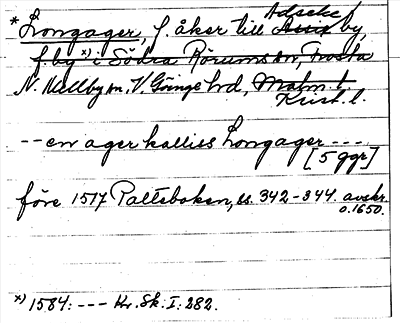 * Longager, f. åker till Adseke by,
f. by x) i Södra Rörums sn, Frosta
N. Mellby sn, V. Göinge hd, Malm. l.
Krist. l.
-- en ager kalliss Longager ----
[5 ggr]
före 1517 Paltsboken, ss. 342-344. avskr.
o. 1650.
x) 1584: --- Kr. Sk. I: 282.